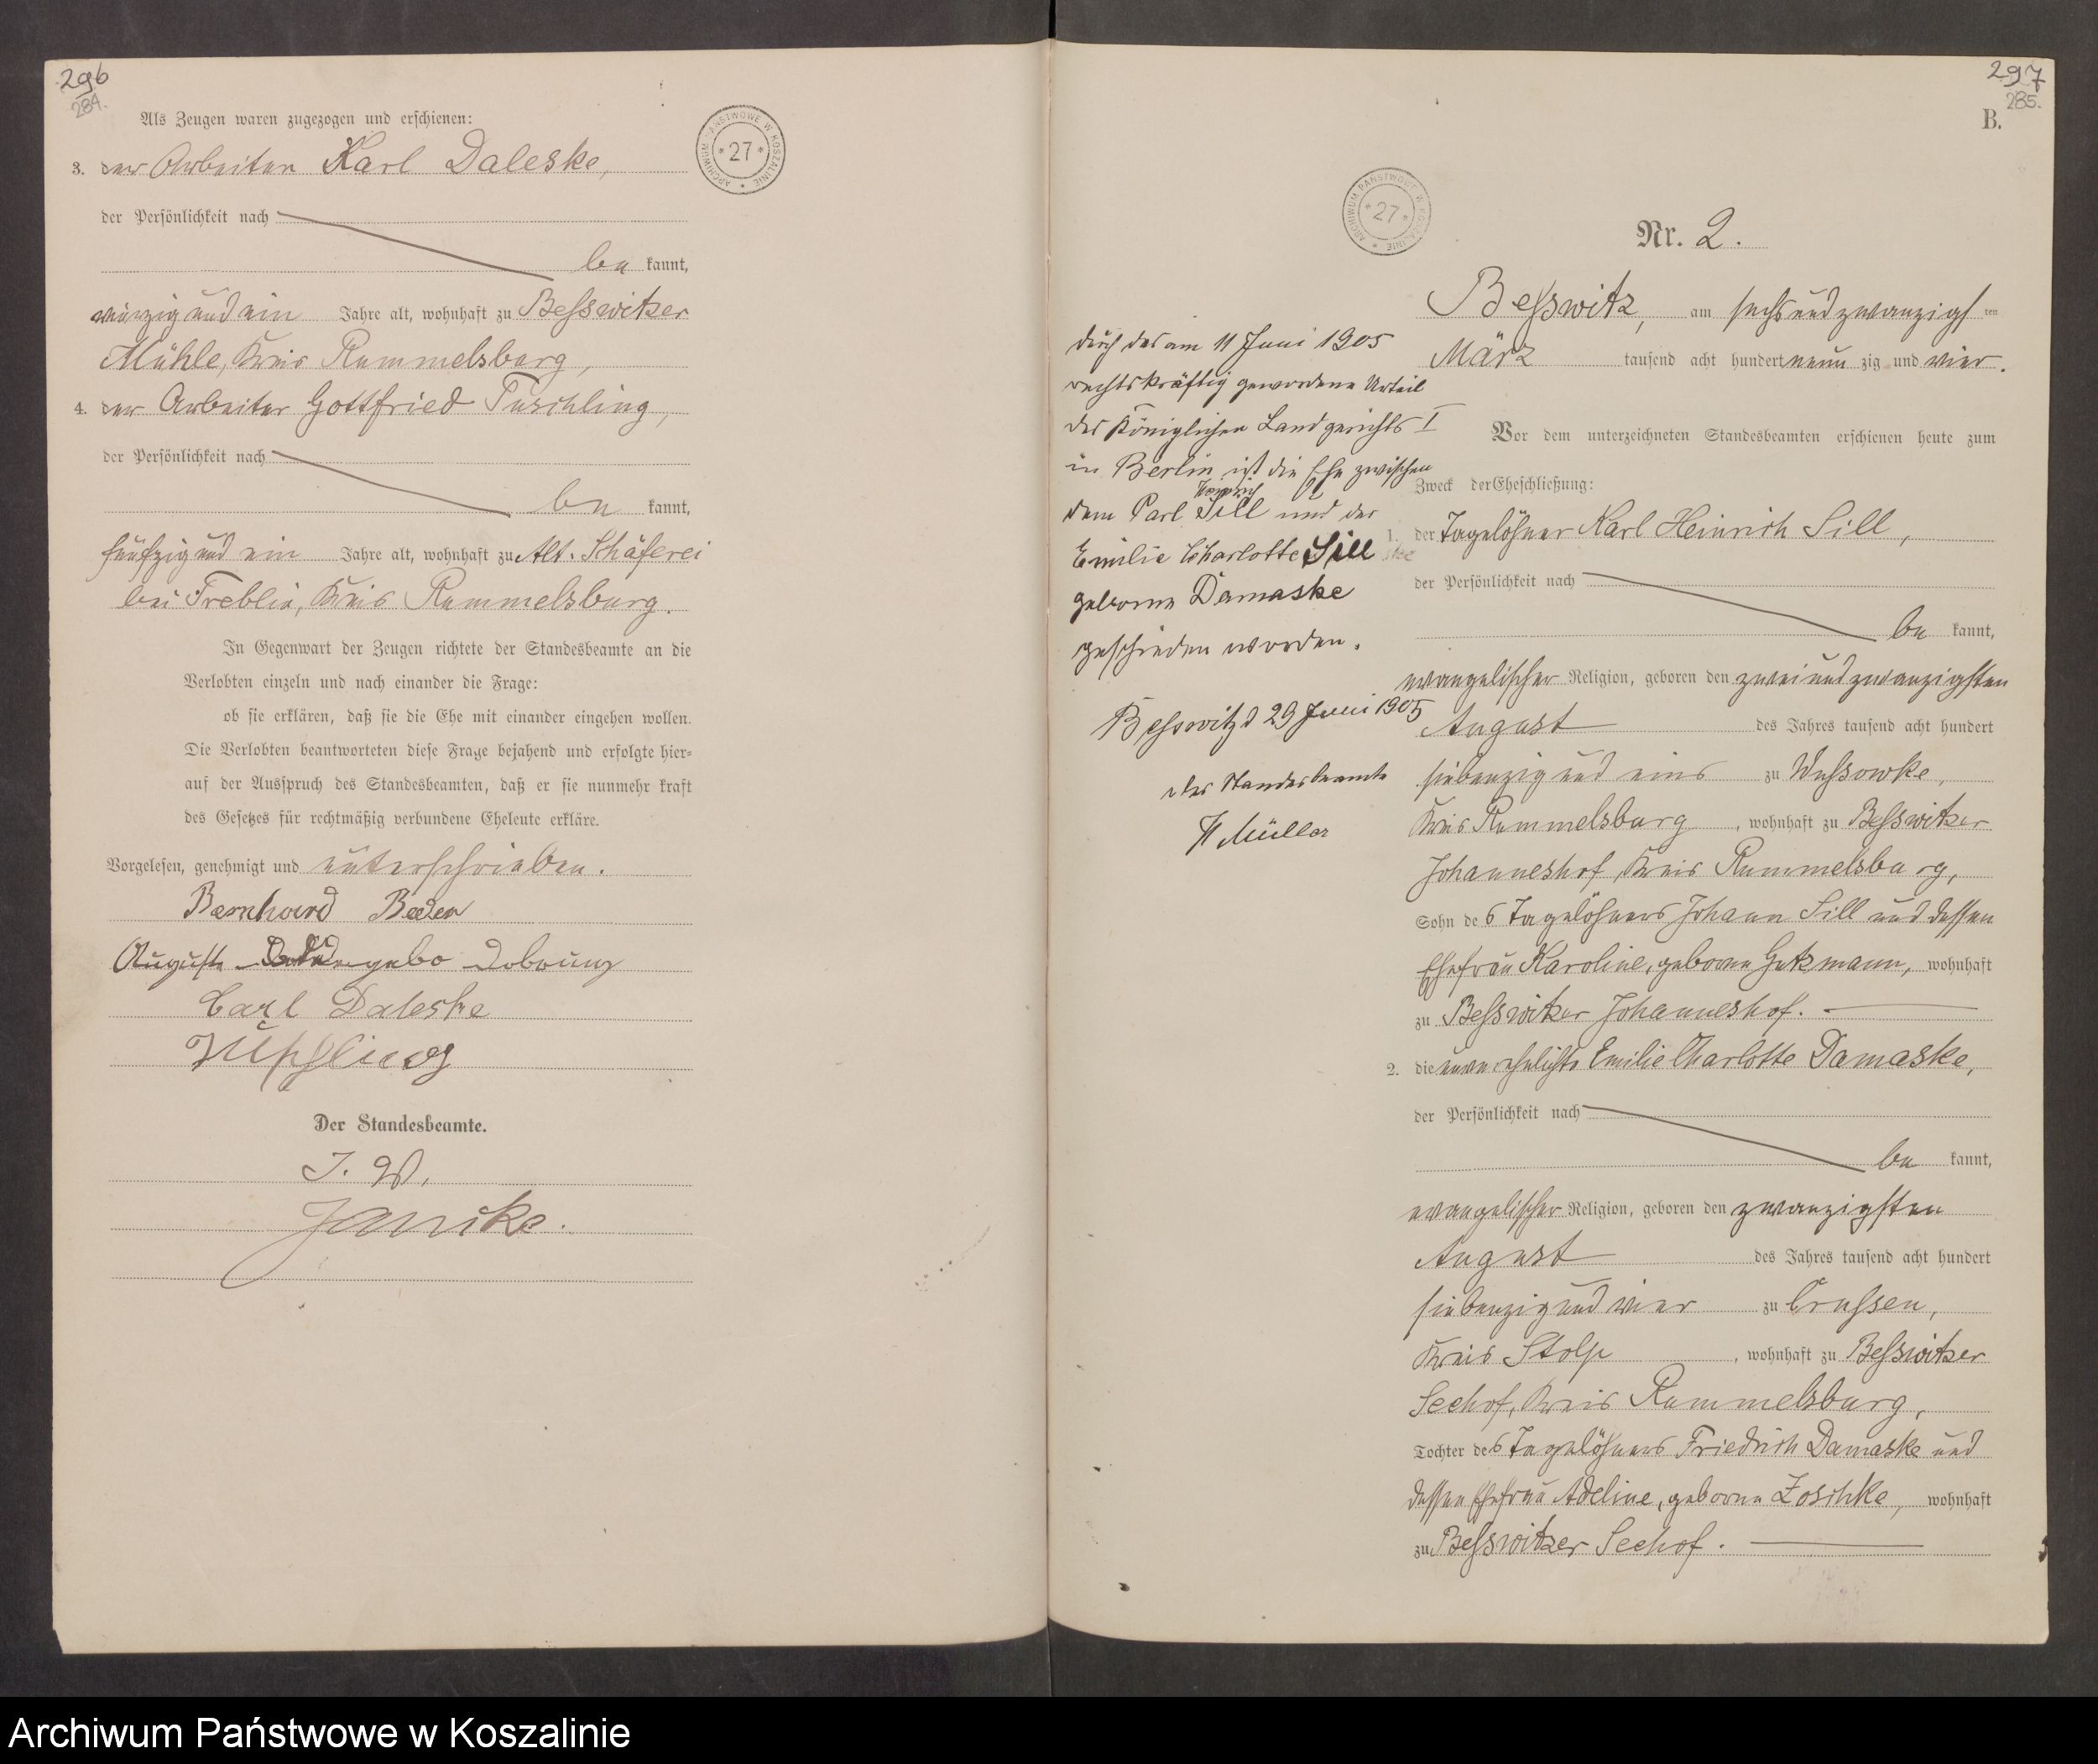 296
284.
Als Zeugen waren zugezogen und erschienen:
3. der Arbeiter Karl Daleske,
der Persönlichkeit nach
be kannt,
vierzig und ein Jahre alt, wohnhaft zu Beßwitzer
Mühle, Kreis Rummelsburg,
4. der Arbeiter Gottfried Tuschling,
der Persönlichkeit nach
be kannt,
fünfzig und ein Jahre alt, wohnhaft zu Alt. Schäferei
bei Treblin, Kreis Rummelsburg.
In Gegenwart der Zeugen richtete der Standesbeamte an die
Verlobten einzeln und nach einander die Frage:
ob sie erklären, daß sie die Ehe mit einander eingehen wollen.
Die Verlobten beantworteten diese Frage bejahend und erfolgte hier-
auf der Ausspruch des Standesbeamten, daß er sie nunmehr kraft
des Gesetzes für rechtmäßig verbundene Eheleute erkläre.
Vorgelesen, genehmigt und unterschrieben.
Bernhard
Auguste gebo
Carl Daleske
Der Standesbeamte.
J. V.
Janike.
ARCHIWUM PAŃSTWOWE W KOSZALINIE * 27 *
297
285.
B.
ARCHIWUM PAŃSTWOWE W KOSZALINIE * 27 *
Nr. 2.
Beßwitz, am sechs und zwanzigsten
März tausend acht hundert neun zig und vier.
Vor dem unterzeichneten Standesbeamten erschienen heute zum
Zweck der Eheschließung:
1. der Tagelöhner Karl Heinrich Sill,
der Persönlichkeit nach
be kannt,
evangelischer Religion, geboren den zwei und zwanzigsten
August des Jahres tausend acht hundert
siebenzig und eins zu Wussowke,
Kreis Rummelsburg, wohnhaft zu Beßwitzer
Johanneshof, Kreis Rummelsburg,
Sohn des Tagelöhners Johann Sill und dessen
Ehefrau Karoline, geborne Gutzmann, wohnhaft
zu Beßwitzer Johanneshof.
2. die unverehelichte Emilie Charlotte Damaske,
der Persönlichkeit nach
be kannt,
evangelischer Religion, geboren den zwanzigsten
August des Jahres tausend acht hundert
siebenzig und vier zu Crussen,
Kreis Stolp, wohnhaft zu Beßwitzer
Seehof, Kreis Rummelsburg,
Tochter des Tagelöhners Friedrich Damaske und
dessen Ehefrau Adeline, geborne Zoschke, wohnhaft
zu Beßwitzer Seehof.
Durch das am 11 Juni 1905
rechtskräftig gewordene Urteil
des Königlichen Landgerichts I
in Berlin ist die Ehe zwischen
Heinrich
dem Carl Sill und der
Emilie Charlotte Sill
geborne Damaske
geschieden worden.
Beßwitz d 29 Juni 1905
Der Standesbeamte
H Müller
Archiwum Państwowe w Koszalinie